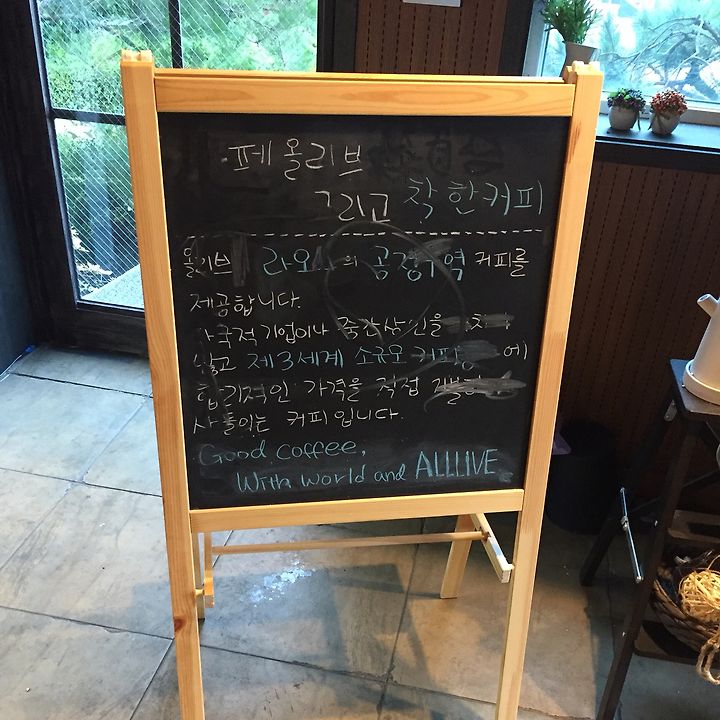 페 올리브
그리고 착한커피
올리브 의 공정무역 커피를
제공합니다.
다국적기업이나 중간상인을
않고 제3세계 소규모 커피 에
합리적인 가격을 직접
사들이는 커피입니다.
Good coffee,
With world and ALLLIVE